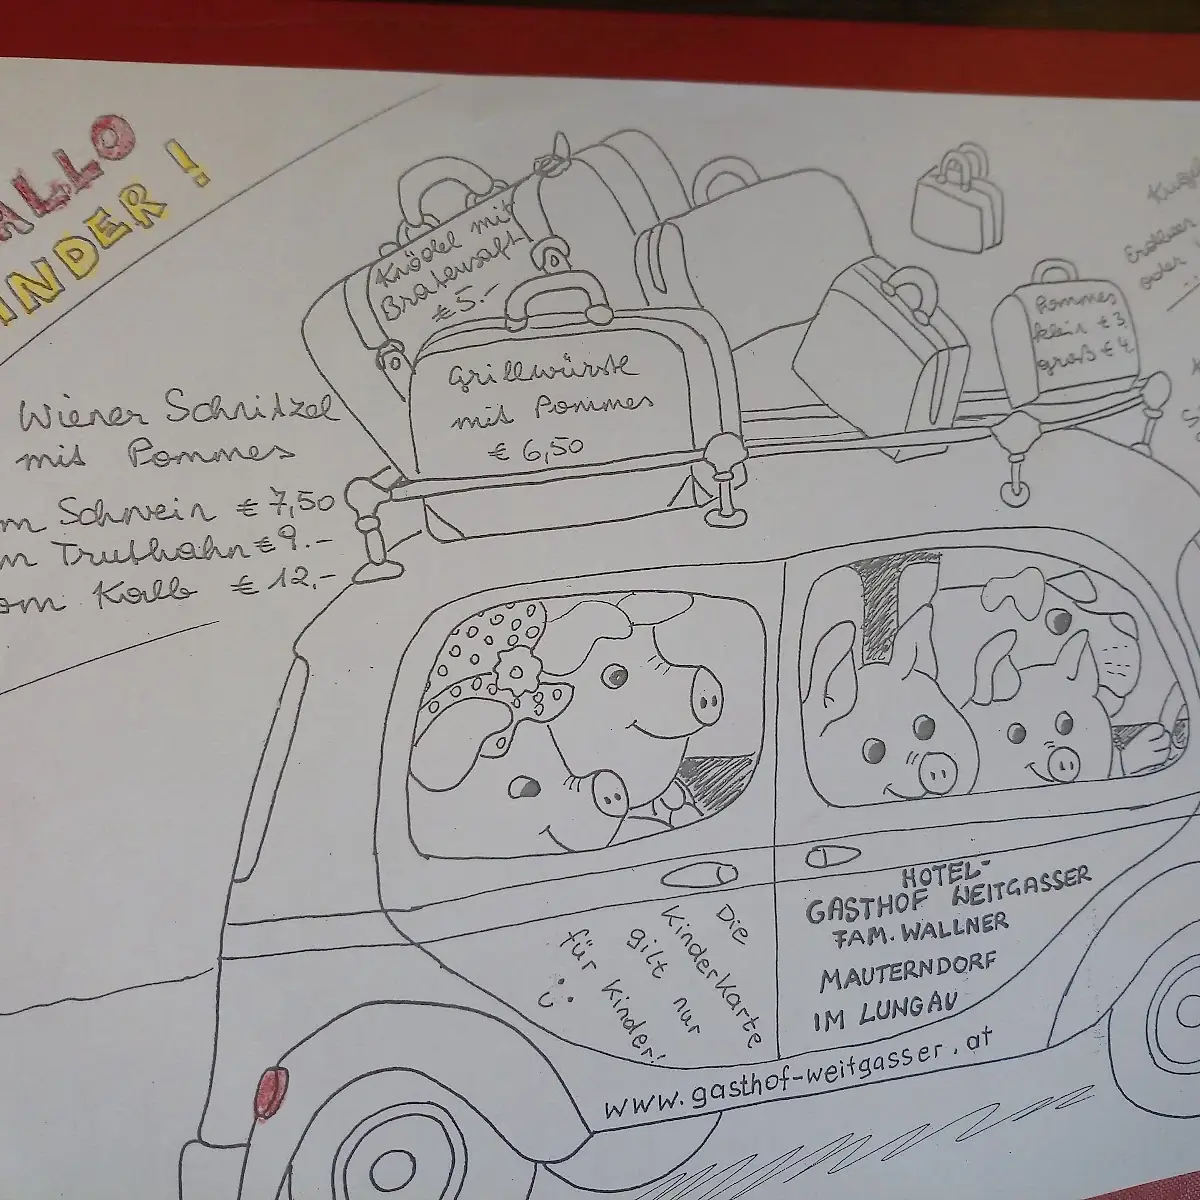 ALLO
INDER !
Wiener Schnitzel
mit Pommes
m Schwein € 7,50
m Truthahn € 9.-
om Kalb € 12,-
Knödel mit
Bratensaft
€ 5.-
Grillwürste
mit Pommes
€ 6,50
Pommes
klein € 3,
groß € 4,
oder
Die
Kinderkarte
gilt nur
für Kinder!
HOTEL-
GASTHOF WEITGASSER
FAM. WALLNER
MAUTERNDORF
IM LUNGAU
www.gasthof-weitgasser.at